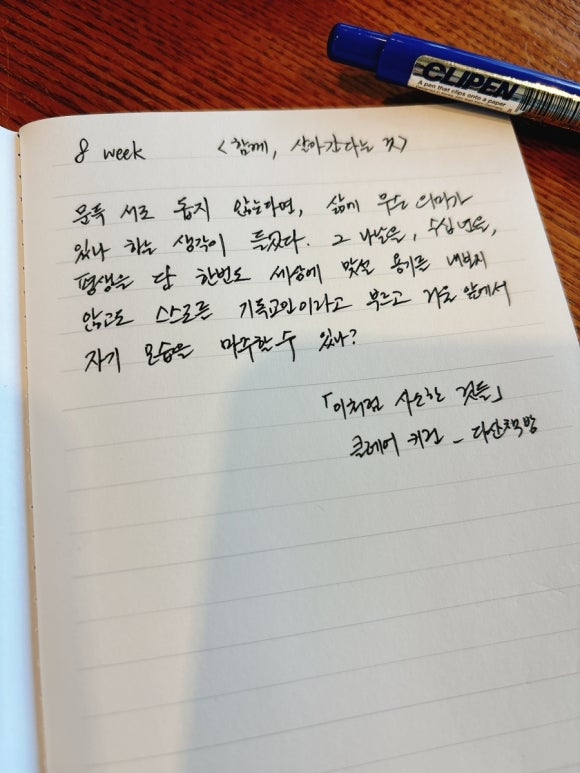 CLIPEN
A pen that clips onto a paper
8 week <함께, 살아간다는 것>
문득 서로 돕지 않는다면, 삶에 무슨 의미가
있나 하는 생각이 들었다. 그 나날을, 수십 년을,
평생을 단 한번도 세상에 맞설 용기를 내보지
않고도 스스로를 기독교인이라고 부르고 거울 앞에서
자기 모습을 마주할 수 있나?
「이처럼 사소한 것들」
클레어 키건 - 다산책방